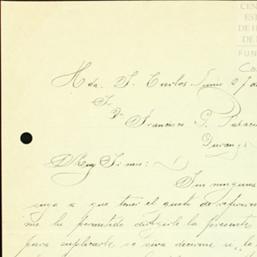 CEN
ES
DE H
DE
FUN
Hda. S. Carlos Junio 27 de
S. Dn.
Francisco P. Palacio
Durango
Muy Sr mio:
Sin ninguna
a que tener el gusto de
me he permitido dirigirle la presente
para suplicarle se sirva decirme si la